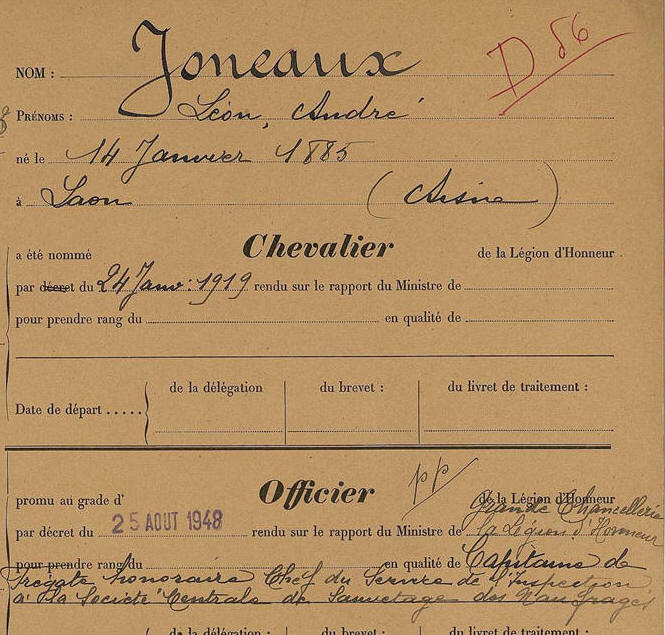 D 86
NOM : Joneaux
PRÉNOMS : Léon, André
né le 14 Janvier 1885
à Laon (Aisne)
a été nommé Chevalier de la Légion d'Honneur
par décret du 24 Janv: 1919 rendu sur le rapport du Ministre de
pour prendre rang du en qualité de
de la délégation du brevet : du livret de traitement :
Date de départ .....
pp
promu au grade d' Officier de la Légion d'Honneur
Grande Chancellerie
par décret du 25 AOUT 1948 rendu sur le rapport du Ministre de la Légion d'Honneur
pour prendre rang du en qualité de Capitaine de
frégate honoraire Chef du Service de l'inspection
à la Société Centrale de Sauvetage des Naufragés
de la délégation : du brevet : du livret de traitement :